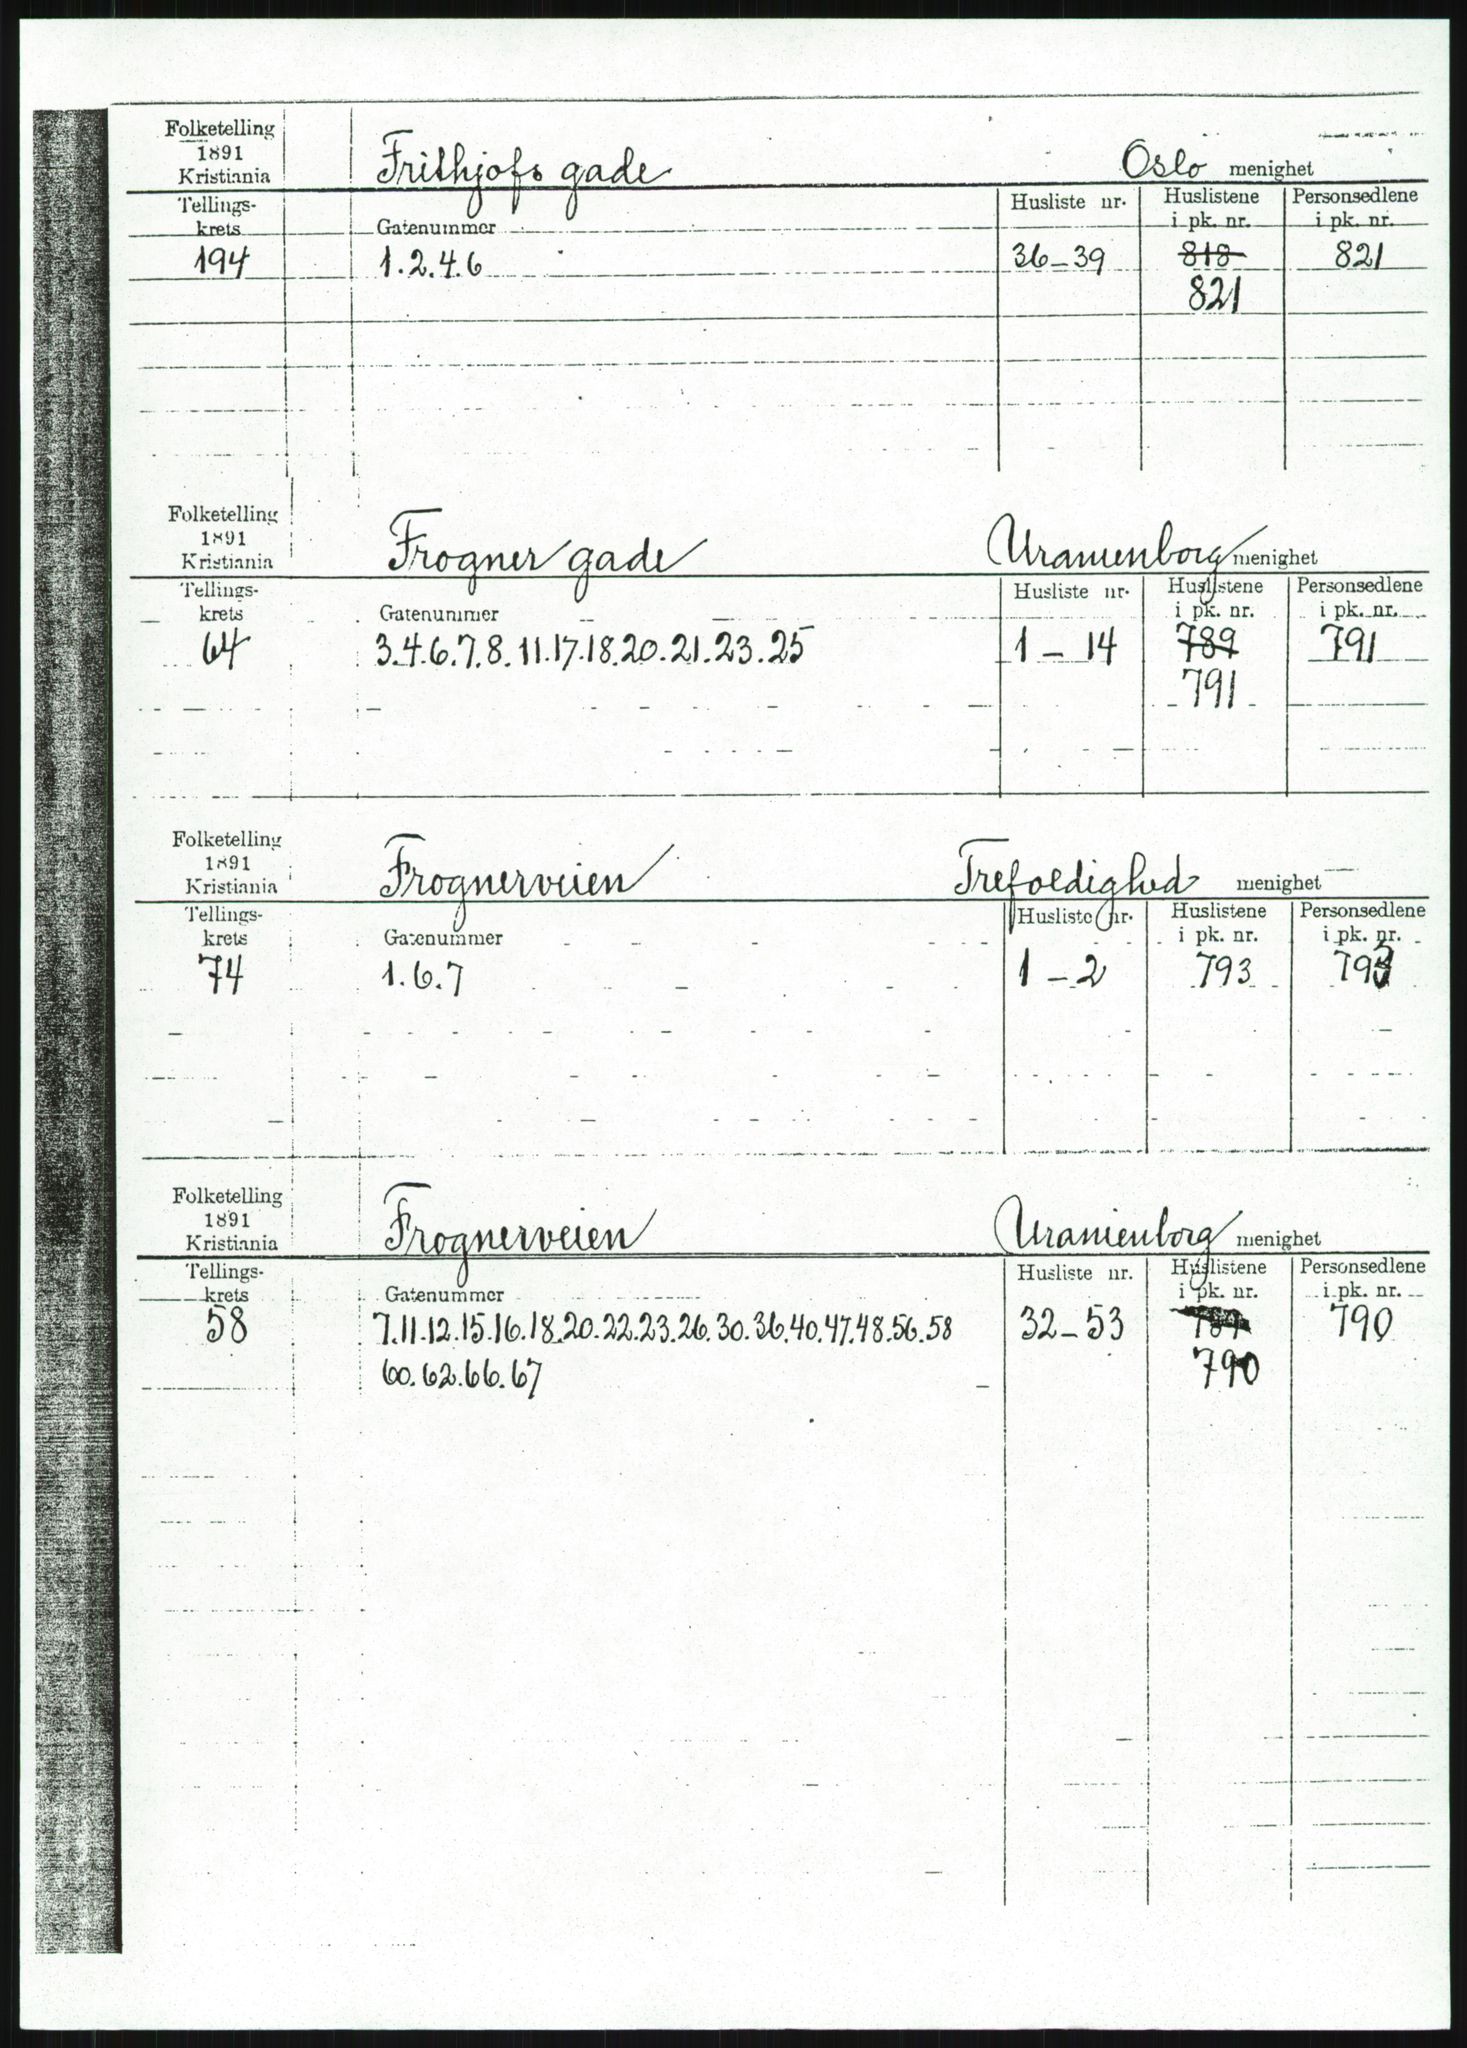 Folketelling
1891
Kristiania
Frithjofs gade
Oslo menighet
Tellings-
krets
Gatenummer
Husliste nr.
Huslistene
i pk. nr.
Personsedlene
i pk. nr.
194
1.2.4.6
36-39
818
821
821
Folketelling
1891
Kristiania
Frogner gade
Uranienborg menighet
Tellings-
krets
Gatenummer
Husliste nr.
Huslistene
i pk. nr.
Personsedlene
i pk. nr.
64
3.4.6.7.8.11.17.18.20.21.23.25
1-14
789
791
791
Folketelling
1891
Kristiania
Frognerveien
Trefoldighed menighet
Tellings-
krets
Gatenummer
Husliste nr.
Huslistene
i pk. nr.
Personsedlene
i pk. nr.
74
1.6.7
1-2
793
793
Folketelling
1891
Kristiania
Frognerveien
Uranienborg menighet
Tellings-
krets
Gatenummer
Husliste nr.
Huslistene
i pk. nr.
Personsedlene
i pk. nr.
58
7.11.12.15.16.18.20.22.23.26.30.36.40.47.48.56.58
32-53
790
60.62.66.67
790